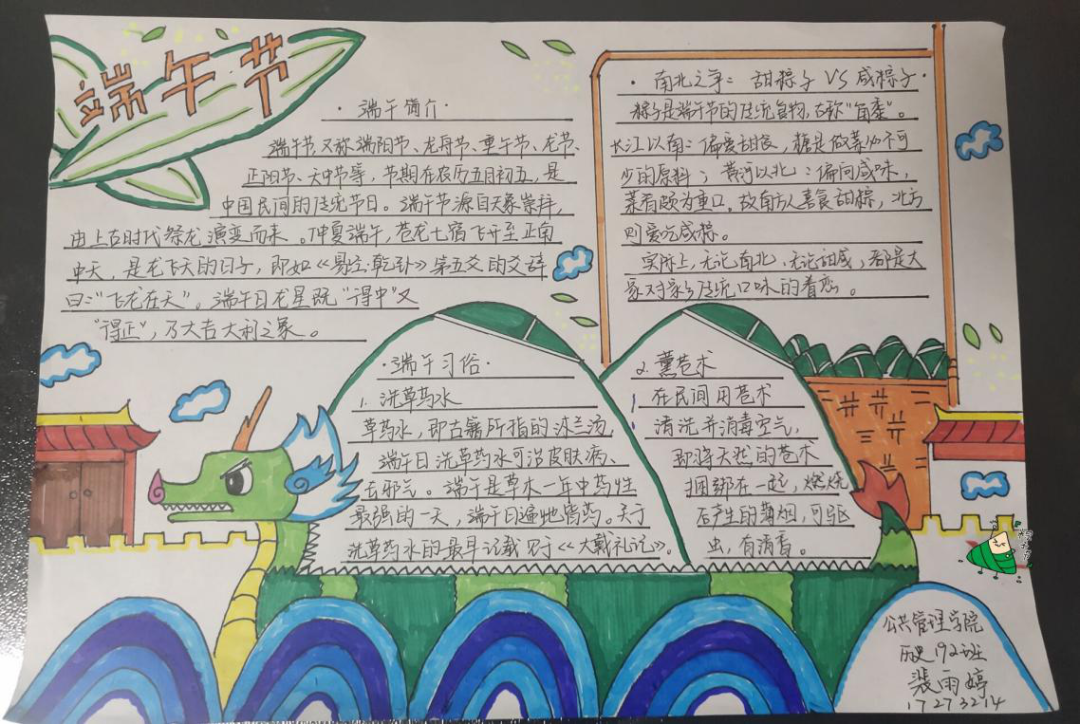 端午节
·端午简介·
端午节又称端阳节、龙舟节、重午节、龙节、
正阳节、天中节等，节期在农历五月初五，是
中国民间的传统节日。端午节源自天象崇拜，
由上古时代祭龙演变而来。仲夏端午，苍龙七宿飞升至正南
中天，是龙飞天的日子，即如《易经·乾卦》第五爻的爻辞
曰："飞龙在天"。端午日龙星既"得中"又
"得正"，乃大吉大利之象。
·南北之争：甜粽子 VS 咸粽子·
粽子是端午节的传统食物，古称"角黍"。
长江以南：偏爱甜食，糖是做菜必不可
少的原料；黄河以北：偏向咸味，
菜肴颇为重口。故南方人喜食甜粽，北方
则爱吃咸粽。
实际上，无论南北，无论甜咸，都是大
家对家乡传统口味的眷恋。
·端午习俗·
1. 洗草药水
草药水，即古籍所指的沐兰汤，
端午日洗草药水可治皮肤病、
去邪气。端午是草木一年中药性
最强的一天，端午日遍地皆药。关于
洗草药水的最早记载见于《大戴礼记》。
2. 薰苍术
在民间用苍术
清洗并消毒空气，
即将天然的苍术
捆绑在一起，燃烧
后产生的薄烟，可驱
虫，有清香。
公共管理学院
历史192班
裴雨婷
17273214